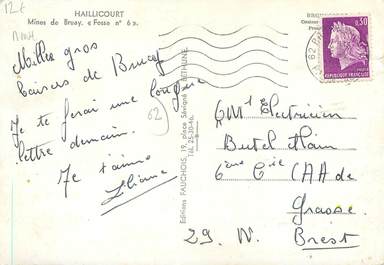 12€
HAILLICOURT
Mines de Bruay. « Fosse n° 6 ».
Mille gros
baisers de Bruay
Je te ferai une longue
lettre demain.
Je t'aime
Eliane
62
Editions FAUCHOIS, 19, place Sévigné BÉTHUNE
Tél. 25-20-46.
0,30
RÉPUBLIQUE FRANÇAISE
QM1 Electricien
Butel Alain
6ème Cie CAA de
Grasse.
29. N. Brest